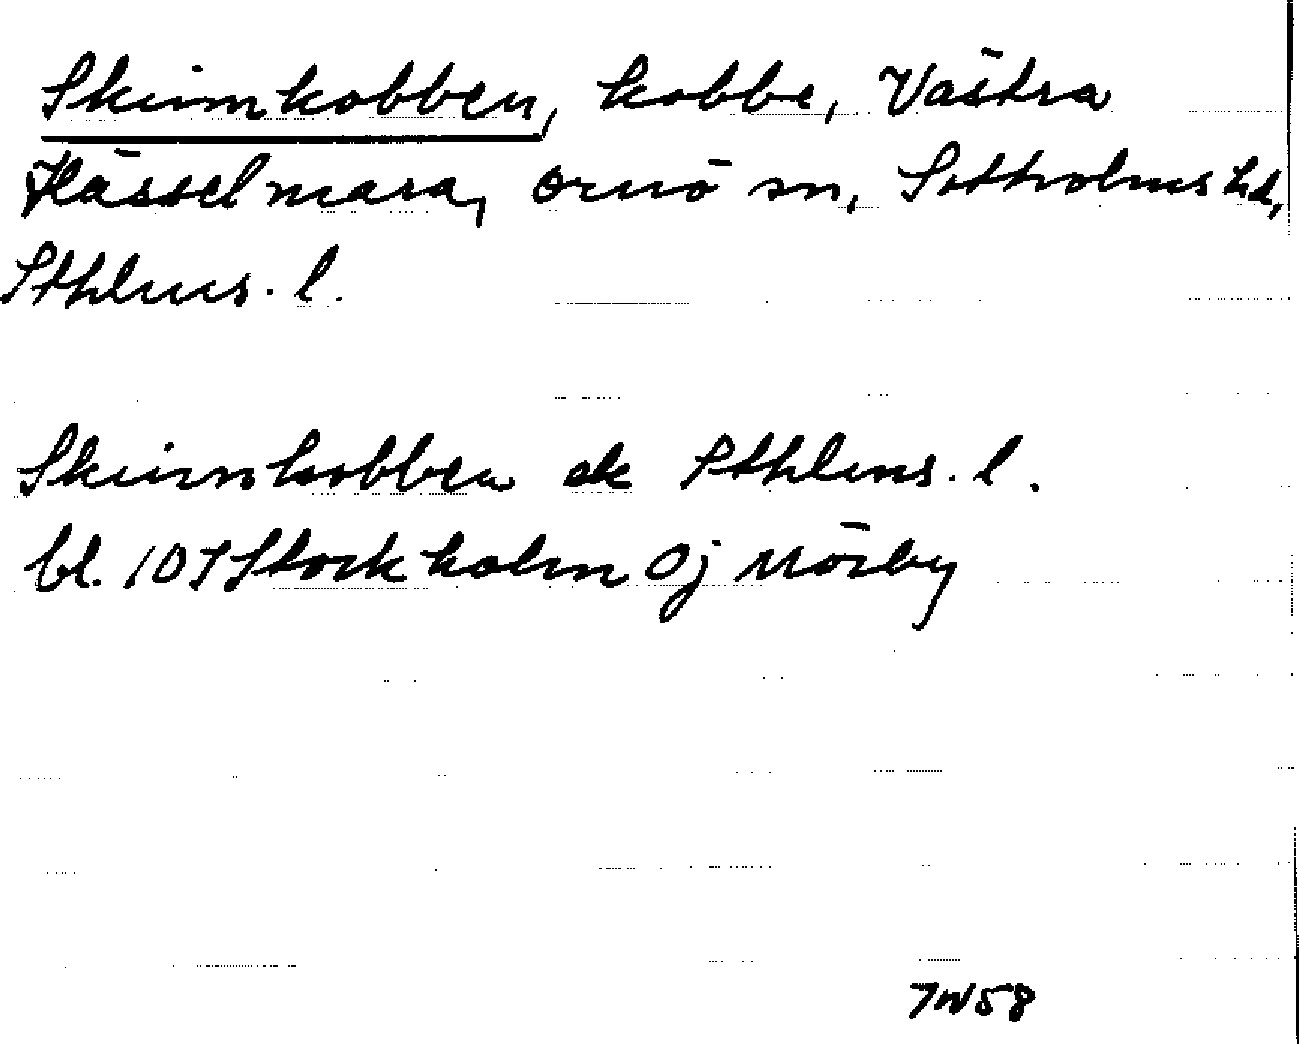 Skinnkobben, kobbe, Västra
Hässelmara, Ornö sn, Sotholms hd,
Sthlms. l.
Skinnkobben ek Sthlms. l.
bl. 107 Stockholm Oj Mörby
7W58